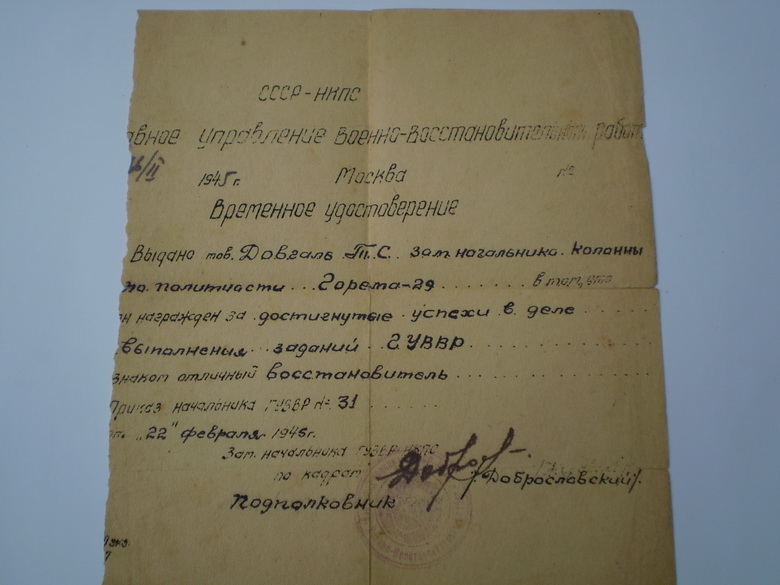 СССР-НКПС
авное управление военно-восстановительных работ
/II 1945 г. Москва №
Временное удостоверение
Выдано тов. Довгаль Т.С. зам. начальника колонны
по политчасти . . . Горема-29 . . . . . . . в том, что
он награжден за достигнутые успехи в деле
выполнения заданий ГУВВР
знаком отличный восстановитель
Приказ начальника ГУВВР № 31
от "22" февраля 1945 г.
Зам. начальника ГУВВР НКПС
по кадрам
/Доброславский/
Подполковник
экз.